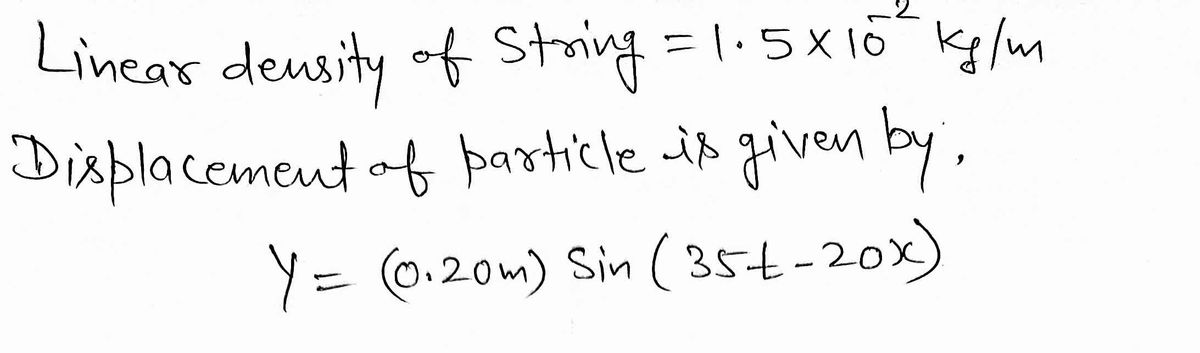 Linear density of String = 1.5 × 10⁻² kg/m
Displacement of particle is given by,
y = (0.20m) Sin (35t - 20x)